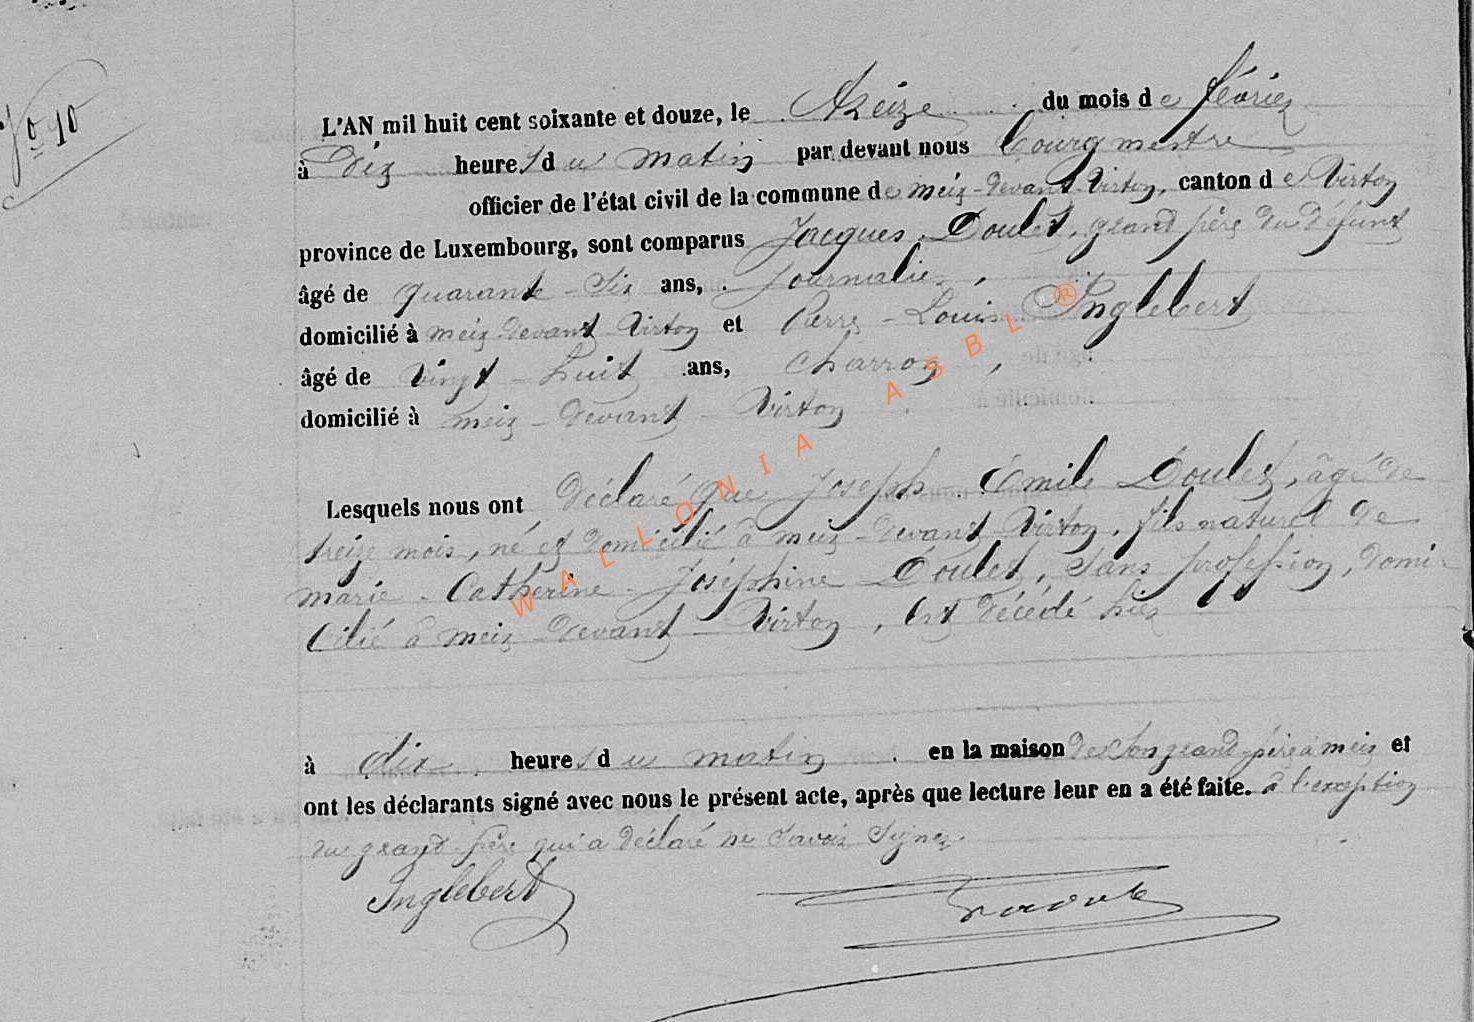 No 10
L'AN mil huit cent soixante et douze, le treize du mois de février
à Dix heures du matin par devant nous bourgmestre
officier de l'état civil de la commune de meix-devant-Virton, canton de Virton
province de Luxembourg, sont comparus Jacques Doulet, grand père du défunt
âgé de quarante-six ans, journalier,
domicilié à meix-devant-Virton et Pierre-Louis Inglebert
âgé de vingt-huit ans, charron,
domicilié à meix-devant-Virton
Lesquels nous ont déclaré que Joseph-Emile Doulet, âgé de
treize mois, né et domicilié à meix-devant-Virton, fils naturel de
marie-Catherine-Joséphine Doulet, sans profession, domi-
cilié à meix-devant-Virton, est décédé hier
à dix heures du matin en la maison de son grand-père à meix et
ont les déclarants signé avec nous le présent acte, après que lecture leur en a été faite. à l'exception
du grand-père qui a déclaré ne savoir signer.
Inglebert
WALLONIA ASBL ®